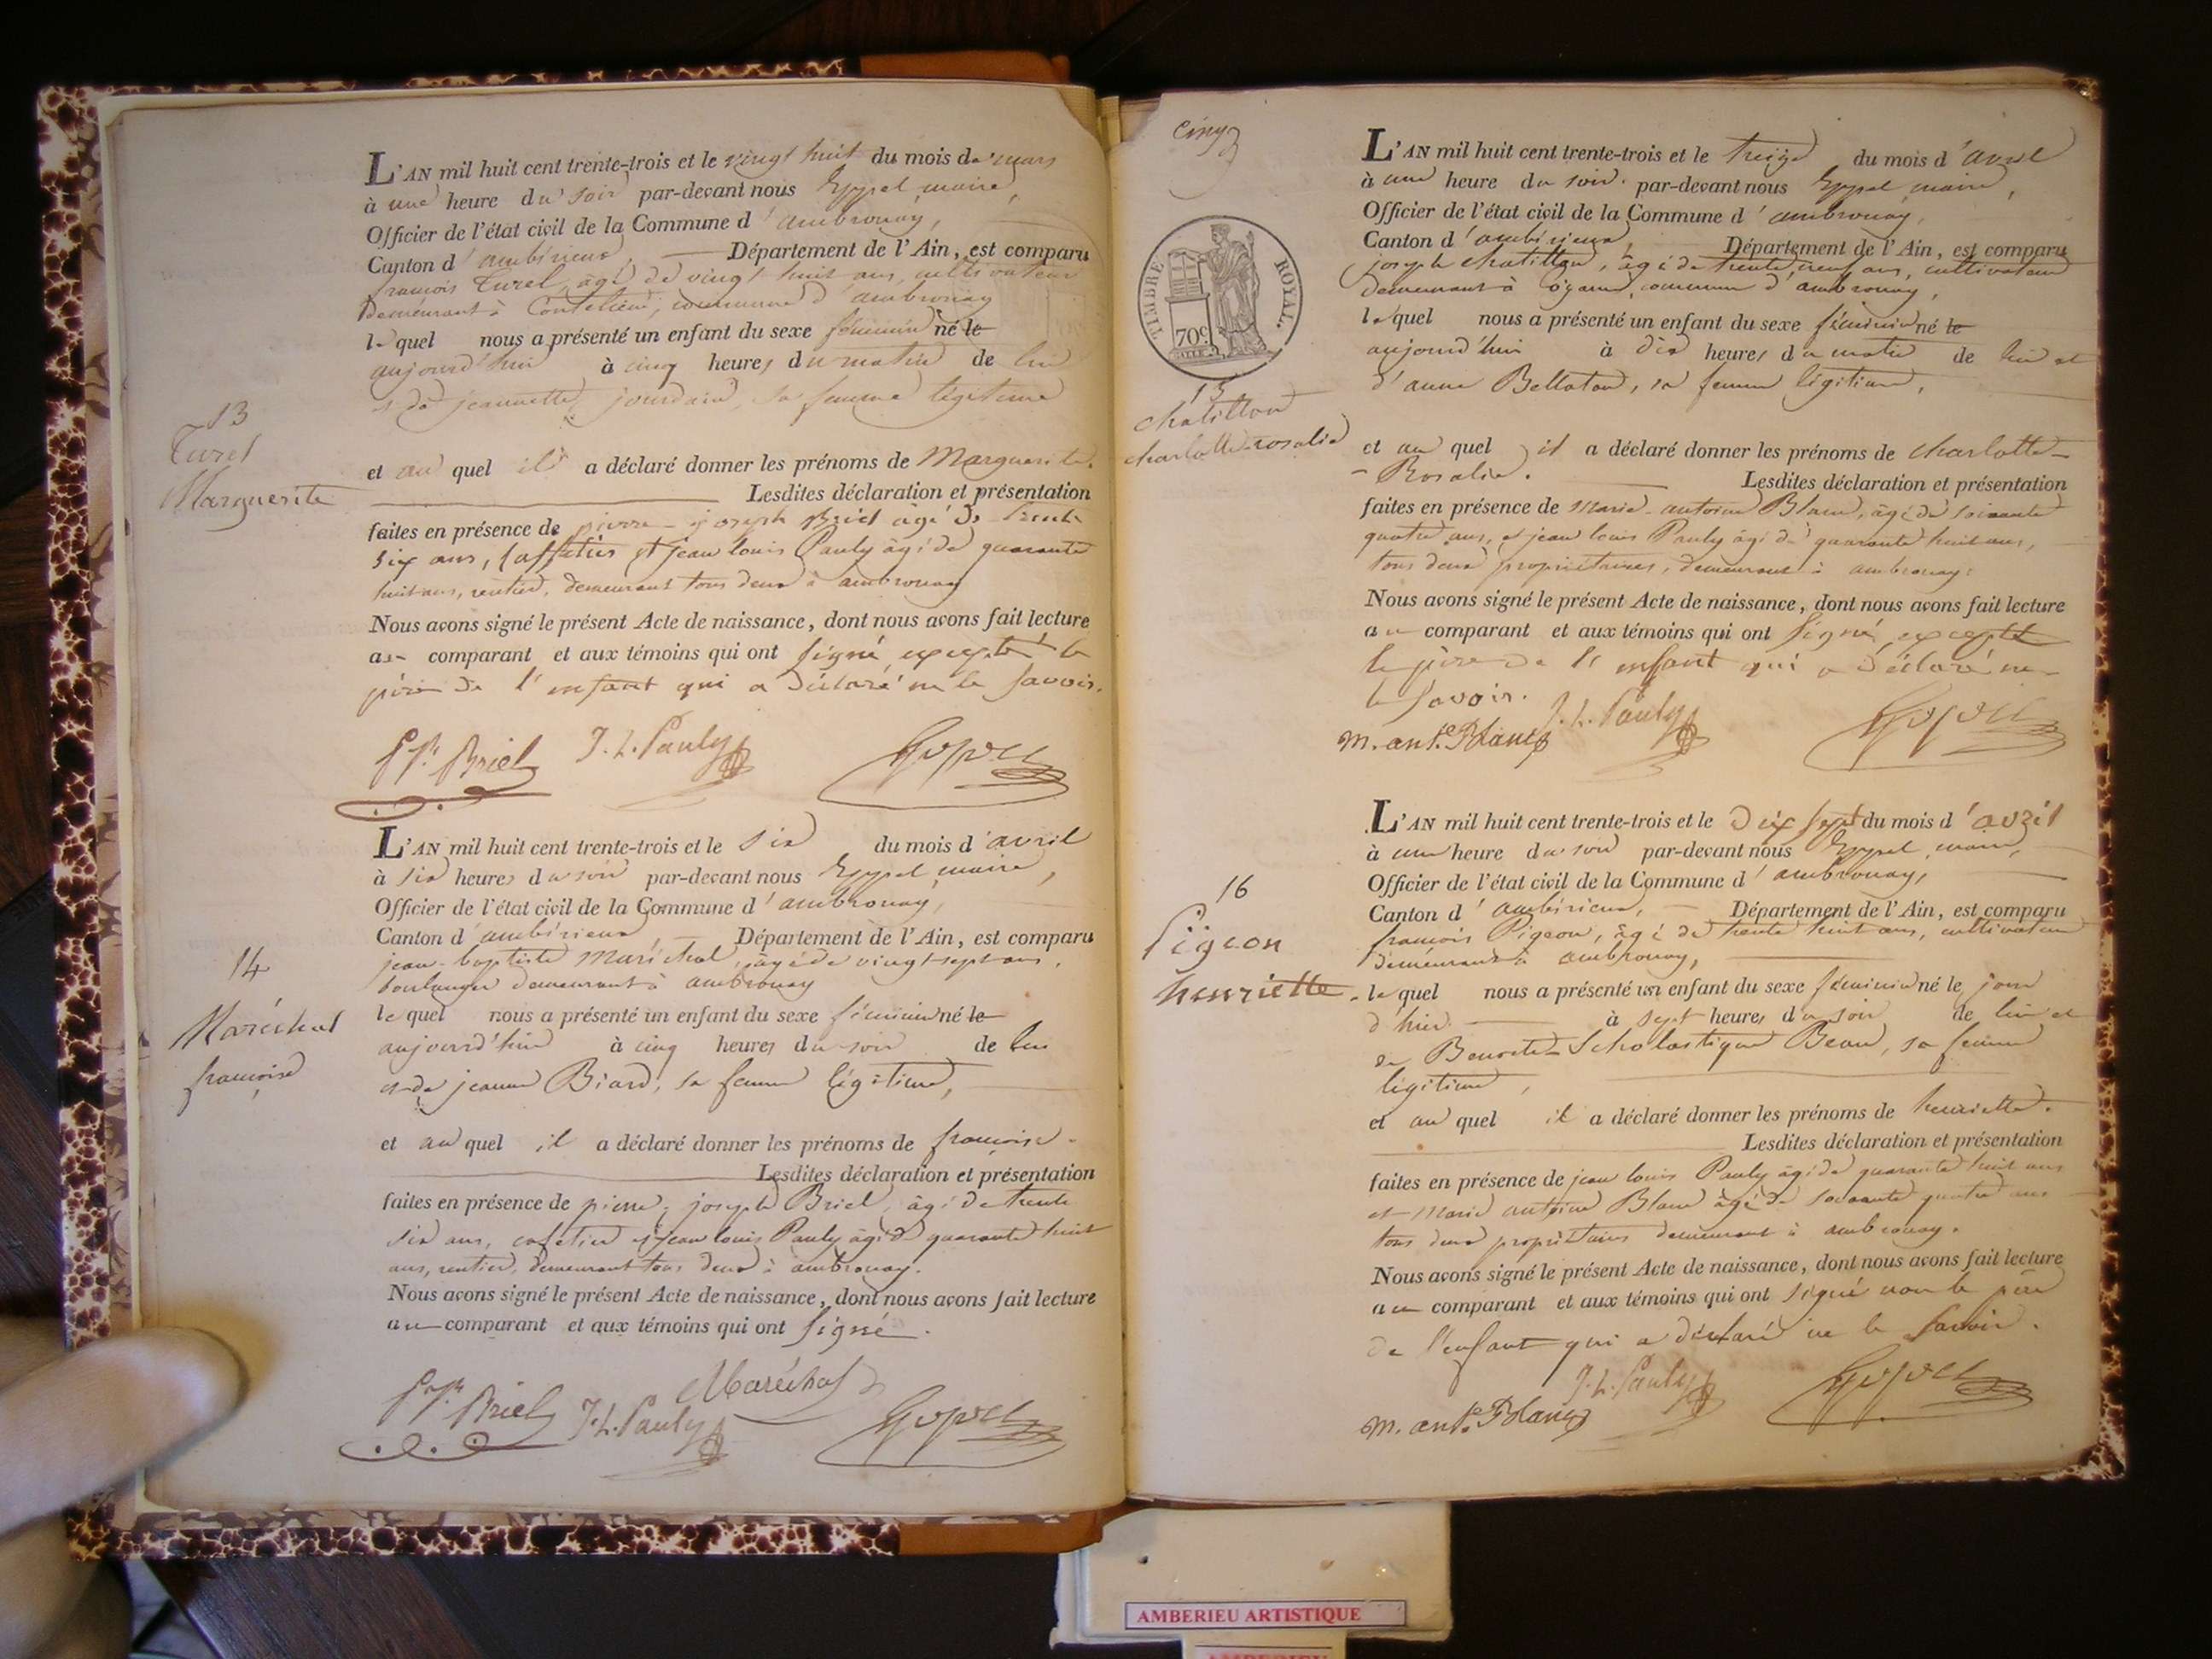 L'AN mil huit cent trente-trois et le vingt huit du mois de mars
à une heure du soir par-devant nous Eyppel maire,
Officier de l'état civil de la Commune d'ambronay,
Canton d'ambérieux, Département de l'Ain, est comparu
françois Turel, âgé de vingt huit ans, cultivateur
demeurant à commune d'ambronay
lequel nous a présenté un enfant du sexe féminin né le
aujourd'hui à cinq heures du matin de lui
et de jeannette jourdain, sa femme légitime
13
Turel
Marguerite
et au quel il a déclaré donner les prénoms de Marguerite.
Lesdites déclaration et présentation
faites en présence de pierre-joseph Briel âgé de trente
six ans, caffetier et jean louis Pauly âgé de quarante
huit ans, rentier, demeurant tous deux à ambronay
Nous avons signé le présent Acte de naissance, dont nous avons fait lecture
au comparant et aux témoins qui ont signé excepté le
père de l'enfant qui a déclaré ne le savoir.
Briel J. L. Pauly
L'AN mil huit cent trente-trois et le six du mois d'avril
à six heures du soir par-devant nous Eyppel maire,
Officier de l'état civil de la Commune d'ambronay,
Canton d'ambérieux, Département de l'Ain, est comparu
jean-baptiste Maréchal, âgé de vingt sept ans,
boulanger demeurant à ambronay
14
Maréchal
françoise
lequel nous a présenté un enfant du sexe féminin né le
aujourd'hui à cinq heures du soir de lui
et de jeanne Biard, sa femme légitime,
et au quel il a déclaré donner les prénoms de françoise.
Lesdites déclaration et présentation
faites en présence de pierre, joseph Briel, âgé de trente
six ans, cafetier et jean louis Pauly âgé de quarante huit
ans, rentier, demeurant tous deux à ambronay.
Nous avons signé le présent Acte de naissance, dont nous avons fait lecture
au comparant et aux témoins qui ont signé.
Briel J. L. Pauly Maréchal
cinq
TIMBRE ROYAL.
70c
L'AN mil huit cent trente-trois et le treize du mois d'avril
à une heure du soir par-devant nous Eyppel maire,
Officier de l'état civil de la Commune d'ambronay,
Canton d'ambérieux, Département de l'Ain, est comparu
joseph chatillon, âgé de trente neuf ans, cultivateur
demeurant à commune d'ambronay,
lequel nous a présenté un enfant du sexe féminin né le
aujourd'hui à dix heures du matin de lui et
d'anne Bellaton, sa femme légitime,
15
chatillon
charlotte-rosalie
et au quel il a déclaré donner les prénoms de charlotte-
Rosalie.
Lesdites déclaration et présentation
faites en présence de Marie-antoine Blanc, âgé de soixante
quatre ans, et jean louis Pauly âgé de quarante huit ans,
tous deux propriétaires, demeurant à ambronay.
Nous avons signé le présent Acte de naissance, dont nous avons fait lecture
au comparant et aux témoins qui ont signé excepté
le père de l'enfant qui a déclaré ne
le savoir.
m. ant.e Blanc J. L. Pauly
L'AN mil huit cent trente-trois et le dix sept du mois d'avril
à une heure du soir par-devant nous Eyppel maire,
Officier de l'état civil de la Commune d'ambronay,
Canton d'ambérieux, Département de l'Ain, est comparu
françois Pigeon, âgé de trente huit ans, cultivateur
demeurant à ambronay,
16
Pigeon
henriette
lequel nous a présenté un enfant du sexe féminin né le jour
d'hier à sept heures du soir de lui et
de Benoite-Scholastique Beau, sa femme
légitime,
et au quel il a déclaré donner les prénoms de henriette.
Lesdites déclaration et présentation
faites en présence de jean louis Pauly âgé de quarante huit ans
et Marie antoine Blanc âgé de soixante quatre ans
tous deux propriétaires demeurant à ambronay.
Nous avons signé le présent Acte de naissance, dont nous avons fait lecture
au comparant et aux témoins qui ont signé non le père
de l'enfant qui a déclaré ne le savoir.
m. ant.e Blanc J. L. Pauly
AMBERIEU ARTISTIQUE
AMBERIEU